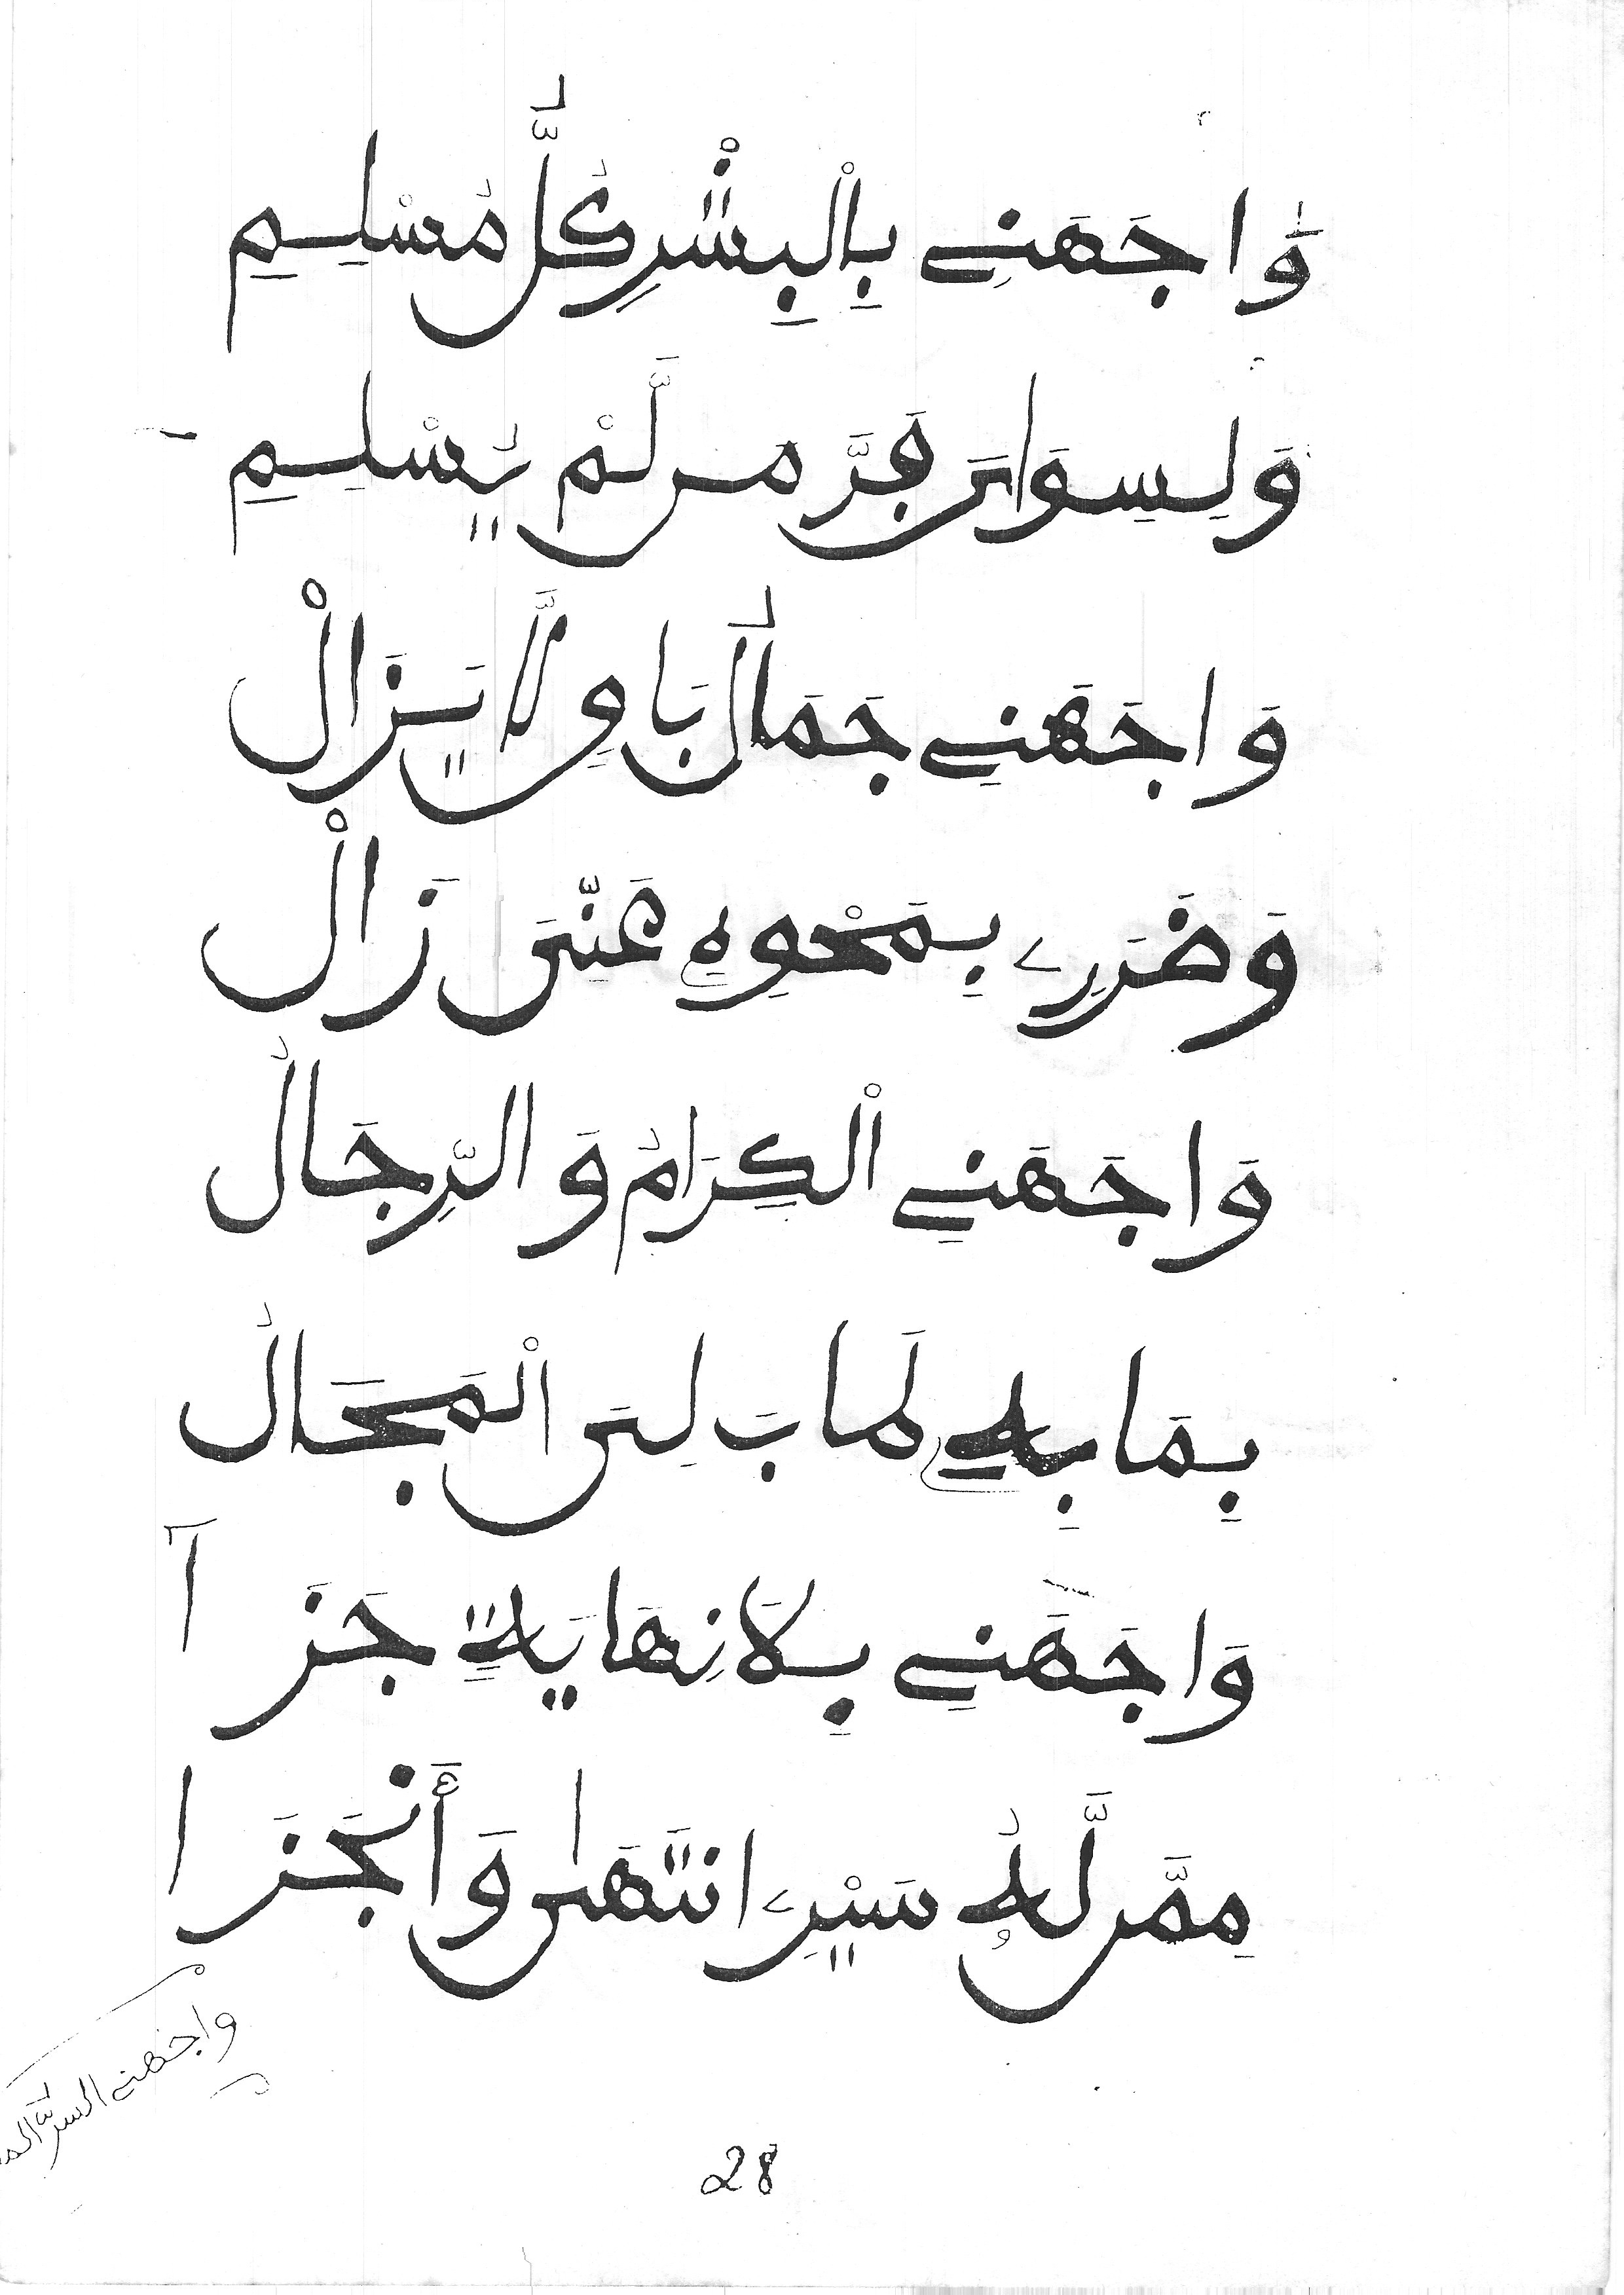 وَاجَهَنِي بِالْبِشْرِ كُلُّ مُسْلِمِ
وَلِسِوَايَ فَرَّ مَن لَّمْ يُسْلِمِ
وَاجَهَنِي جَمَالُ بَاوٍ لَّا يَزَالْ
وَضَرَرِي بِمَحْوِهِ عَنِّي زَالْ
وَاجَهَنِي الْكِرَامُ وَالرِّجَالُ
بِمَا بِهِ طَابَ لِيَ الْمَجَالُ
وَاجَهَنِي بِلَا نِهَايَةٍ جَزَآ
مِمَّن لَّهُ سَيْرِي انْتَهَى وَأَنْجَزَا
وَاجَهَنِي السِّرُّ
28